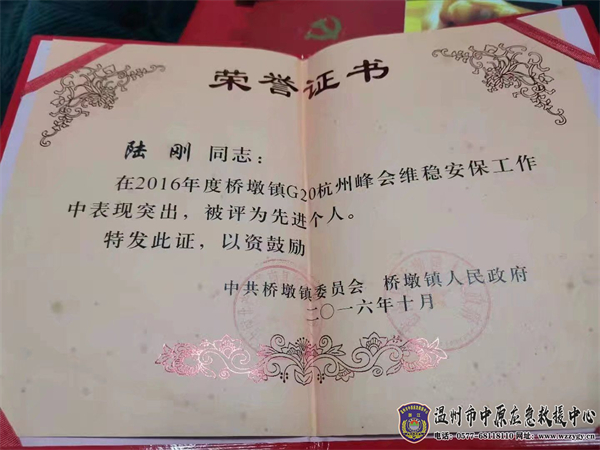 荣誉证书
陆刚 同志：
在2016年度桥墩镇G20杭州峰会维稳安保工作
中表现突出，被评为先进个人。
特发此证，以资鼓励
中共桥墩镇委员会 桥墩镇人民政府
二〇一六年十月
温州市中原应急救援中心
电话：0577-68118110 网址：www.wzzygy.cn